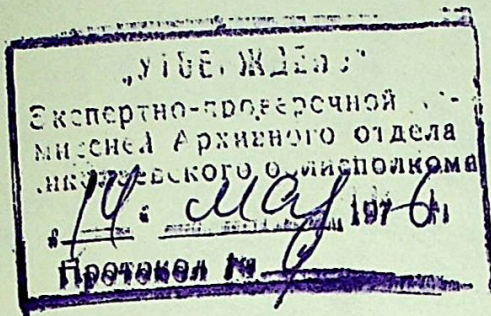 „УТВЕРЖДЕНО"
Экспертно-проверочной
миссией Архивного отдела
николаевского облисполкома
"14" мая 1976 г.
Протокол №